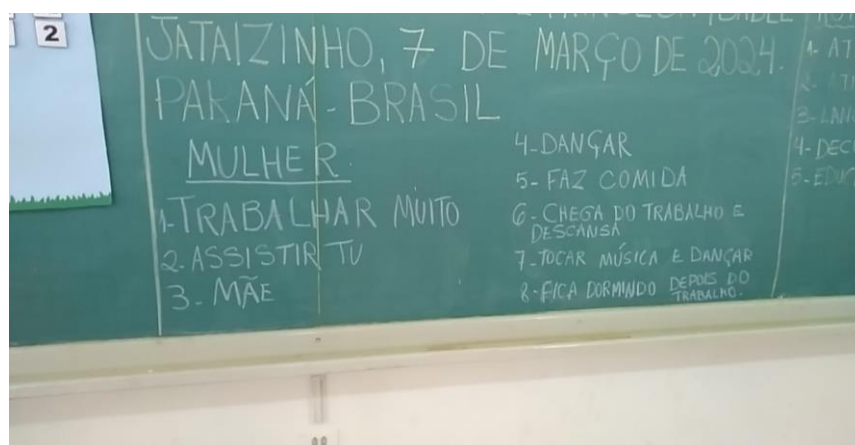 2
JATAIZINHO, 7 DE MARÇO DE 2024.
PARANÁ - BRASIL
MULHER.
1-TRABALHAR MUITO
2-ASSISTIR TV
3-MÃE
4-DANÇAR
5-FAZ COMIDA
6-CHEGA DO TRABALHO E
DESCANSA
7-TOCAR MÚSICA E DANÇAR
8-FICA DORMINDO DEPOIS DO
TRABALHO.
4-DEC
5-EDUC